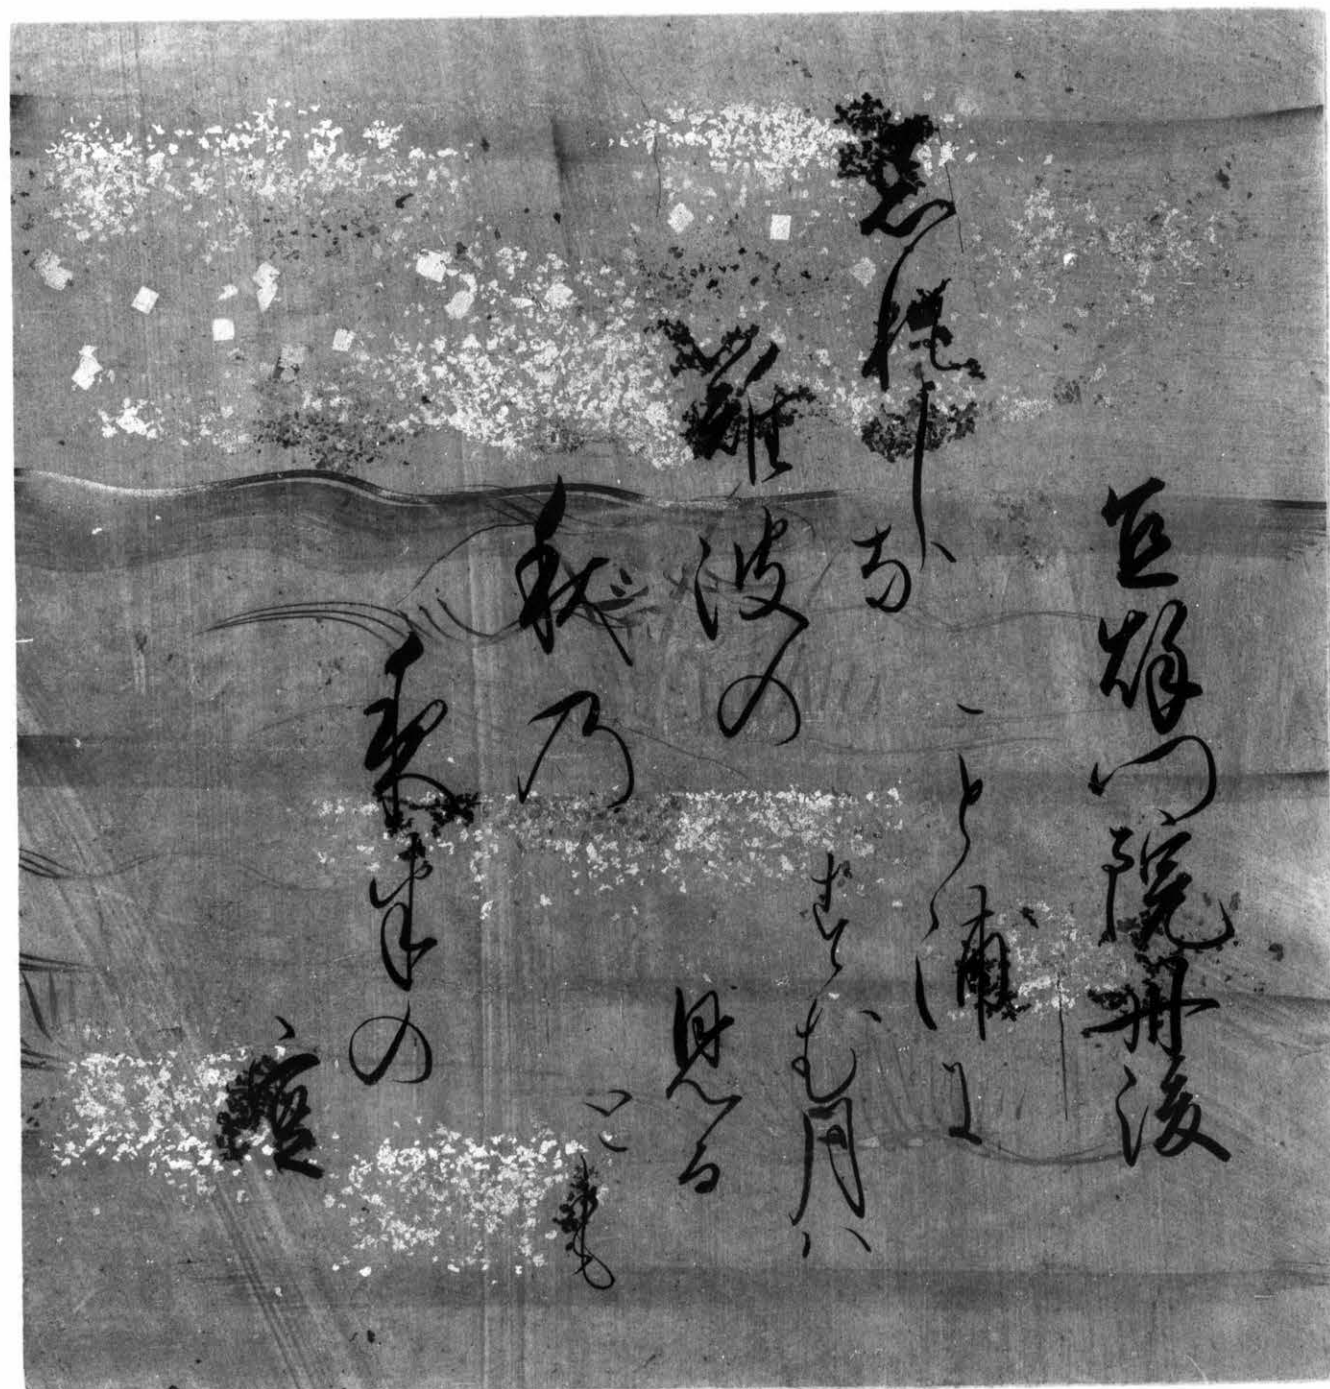 宜秋門院丹後
忘れしな
難波の
秋乃
夜半の
空
こと浦に
すむ月ハ
見る
とも